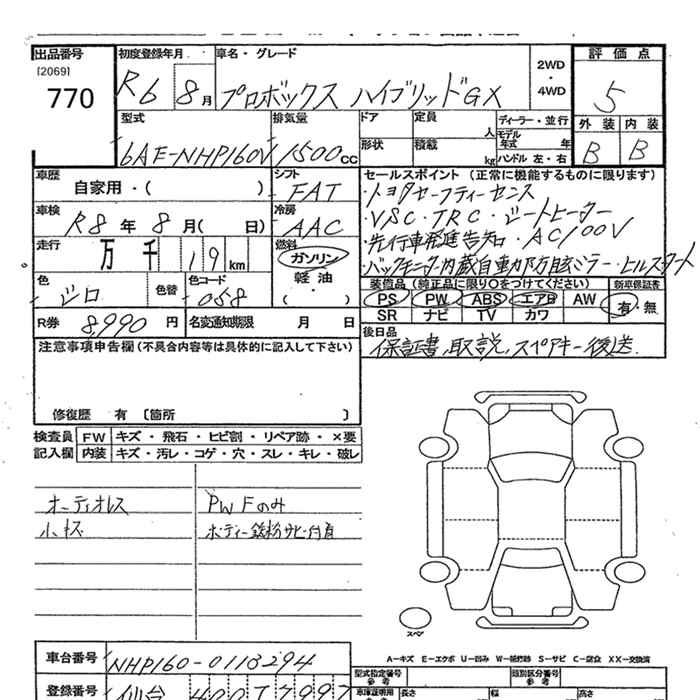 出品番号
[2069]
770
初度登録年月
R6 8月
車名・グレード
プロボックス ハイブリッドGX
2WD
・
4WD
評価点
5
外装 内装
B B
型式
6AE-NHP160V
排気量
1500cc
ドア
形状
定員 人
積載 kg
ディーラー・並行
モデル年式 年
ハンドル 左・右
車歴
自家用・( )
シフト
FAT
車検
R8年 8月( 日)
冷房
AAC
走行
万 千 19 km
燃料
ガソリン
軽油
・( )
色
シロ
色替
色コード
058
R券 8,990円
名変通知期限 月 日
セールスポイント (正常に機能するものに限ります)
・トヨタセーフティーセンス
・VSC・TRC・シートヒーター
・先行車発進告知・AC100V
・バックモニター内蔵自動防眩ミラー・ヒルスタート
装備品 (純正品に限り○をつけてください)
PS PW ABS エアB AW
SR ナビ TV カワ
新車保証書
有・無
後日品
保証書、取説、スペアキー後送
注意事項申告欄(不具合内容等は具体的に記入して下さい)
修復歴 有 〔箇所 〕
検査員記入欄
FW キズ・飛石・ヒビ割・リペア跡・×要
内装 キズ・汚レ・コゲ・穴・スレ・キレ・破レ
オーディオレス
小キズ
PWFのみ
ボディー鉄粉サビ付着
スペア
A-キズ E-エクボ U-凹み W-補修跡 S-サビ C-腐食 XX-交換済
車台番号 NHP160-0113294
登録番号 仙台 400 T 7997
型式指定番号
参考
類別区分番号
参考
車庫証明用
参考
長さ 幅 高さ